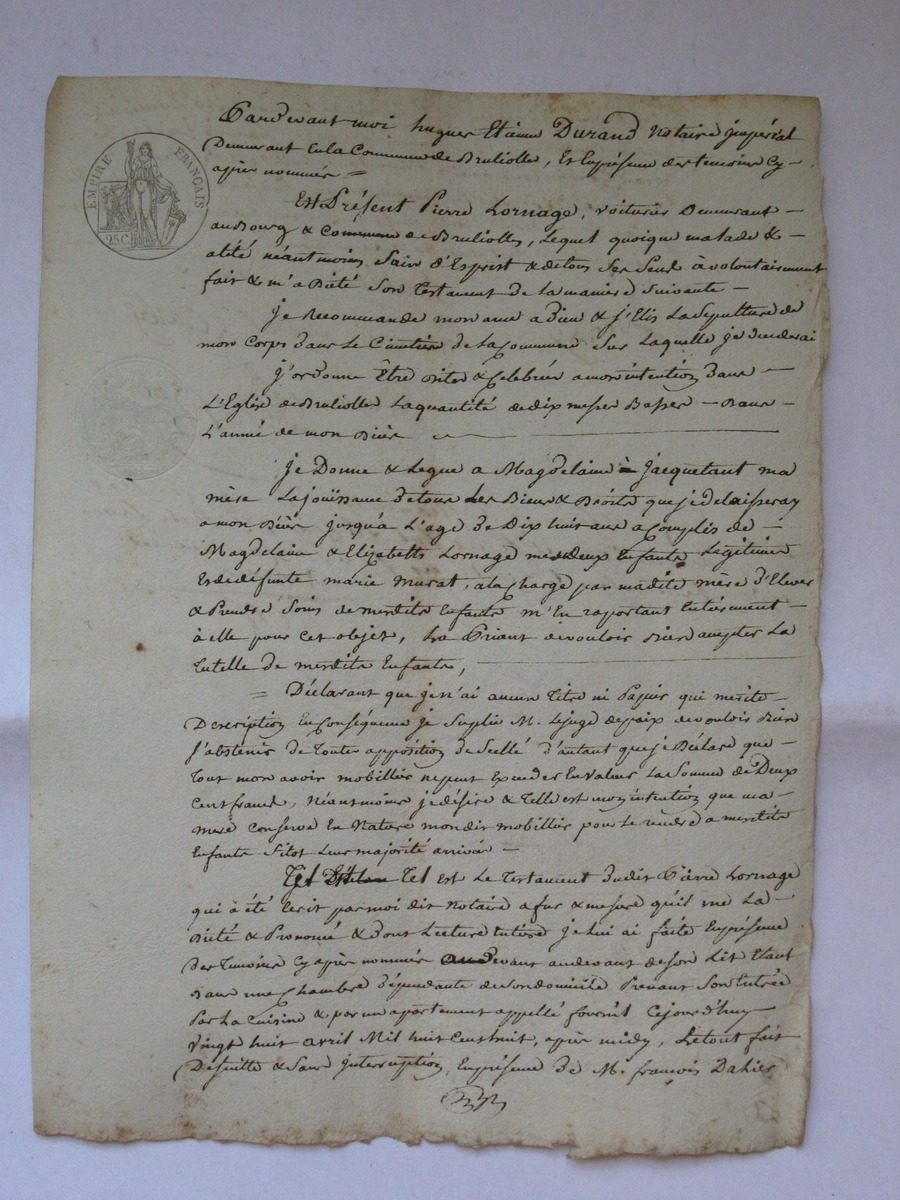 EMPIRE FRANÇAIS
25C
Pardevant moi hugues Etienne Durand Notaire jmpérial
Demeurant En la Commune de Brullolle, Et En présence des temoins Cy-
après nommés =
Est Présent Pierre Lornage, voiturier Demeurant -
au Bourg & Commune de Brulliolles, Lequel quoique malade & -
alité néantmoins Sain d'Esprit & de tous Ses Sens à volontairement
fait & m'a Dicté Son Testament De La maniere Suivante -
Je Recommande mon ame a Dieu & j'Elis La Sepulture de
mon Corps Dans Le Cimetière De La Commune Sur Laquelle je decederai
J'ordonne Être Dites & Celebrées a mon intention Dans -
L'Eglise de Brulliolles La quantité de dix messes Basses - Dans -
L'année de mon Décès
Je Donne & Legue a Magdelaine Jacquetant ma
mère La jouissance de tous Les Biens & Droits que je delaisseray
a mon Décès jusqu'a L'age De Dix huit ans acomplis de -
Magdelaine & Elizabeth Lornage mes deux Enfants Légitimes
Et de défunte marie Murat, a la Charge par madite mère D'Elever
& Prendre Soins de mesdits Enfants m'En raportant Entièrement -
à elle pour cet objet, La Priant de vouloir Bien accepter La
Tutelle de mesdits Enfants,
= Déclarant que je n'ai aucun Titre ni Papier qui merite -
Description En Conséquence je Suplie M. Le juge de paix de vouloir Bien
S'abstenir de Toutes apposition de Scellé d'autant que je Déclare que -
Tout mon avoir mobillier ne peut Exceder En valeur La Somme de Deux
Cent francs, Néantmoins je désire & Telle est mon intention que ma -
mere Conserve En Nature mondit mobillier pour Le rendre a mesdits
Enfants Sitot Leur majorité arrivée -
Tel est Le Testament Dudit Pierre Lornage
qui à été Ecrit par moi dit Notaire a fur & mesure qu'il me L'a
Dicté & Prononcé & Dont Lecture Entière je Lui ai faite En présence
Des Temoins Cy après nommés au devant de Son Lit Etant
Dans une Chambre Dépendante de Son domicile Prenant Son Entrée
Par La Cuisine & par un apartement appellé fournil Cejourd'huy
Vingt huit avril Mil huit Cent huit, après midy, Le tout fait
De Suitte & Sans Interruption, En présence De M. françois Dahier